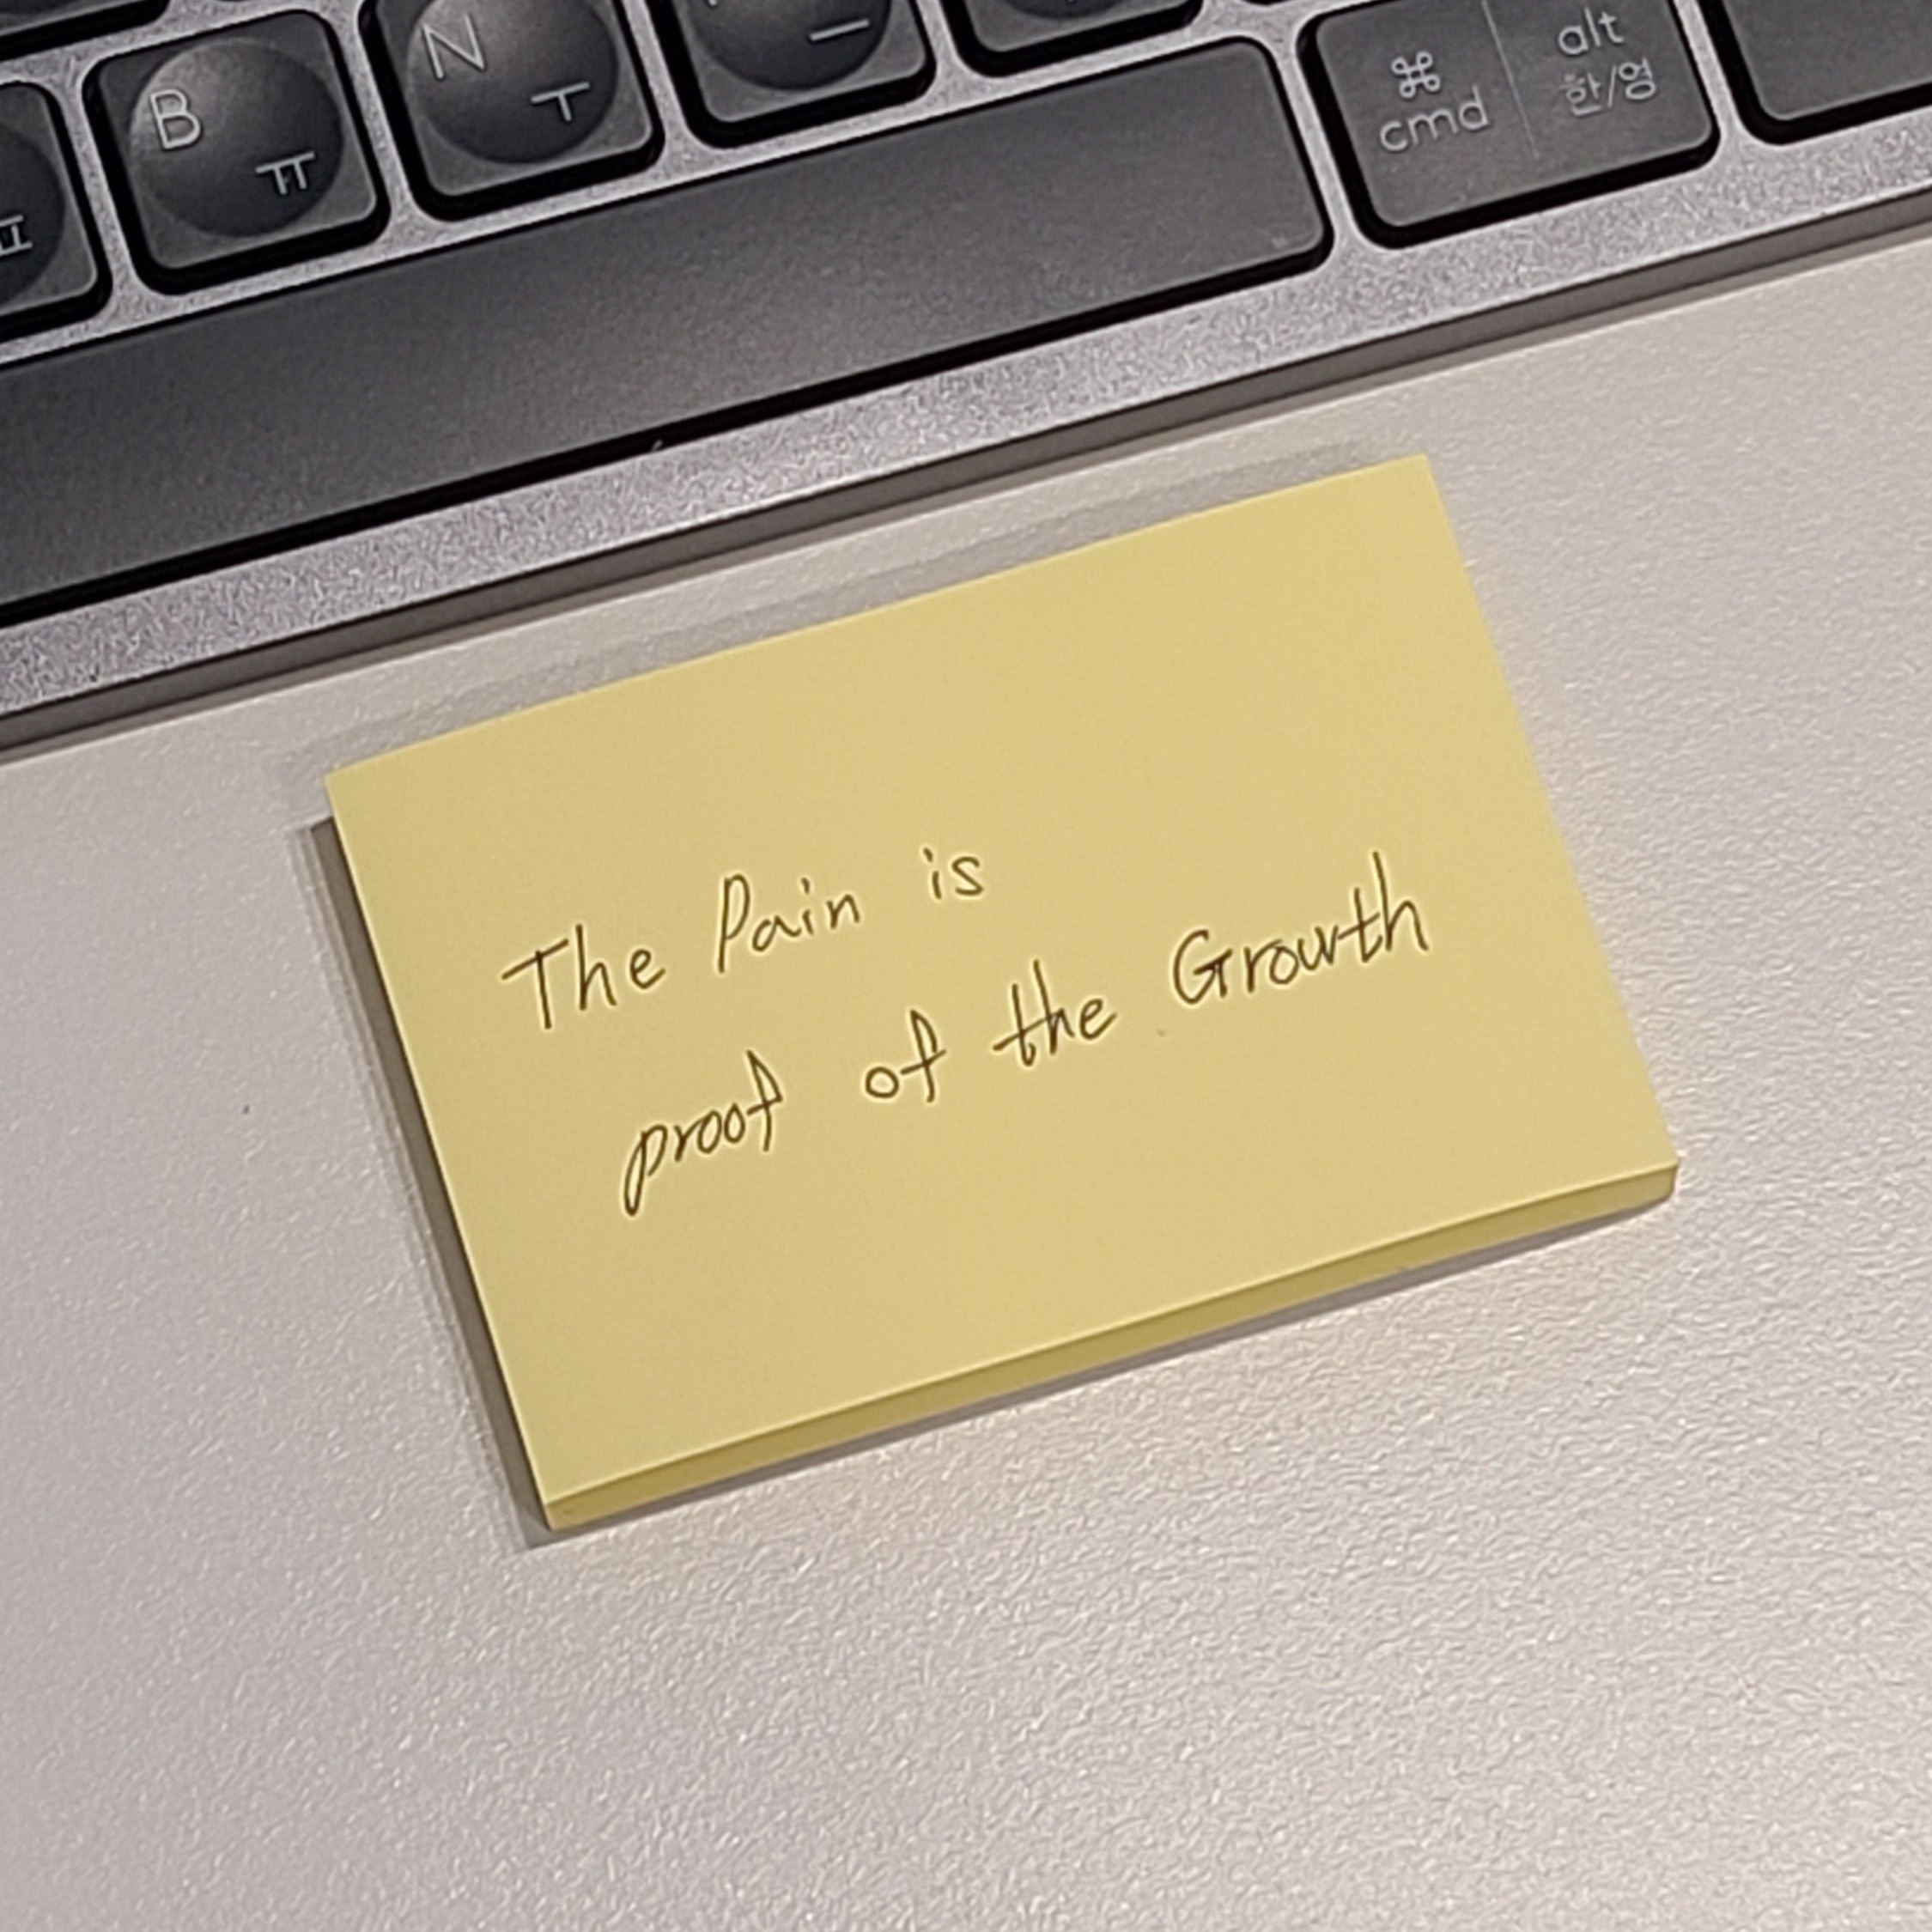 B ㅠ
N ㅜ
ㅡ
ㅍ
⌘ cmd
alt 한/영
The Pain is
proof of the Growth